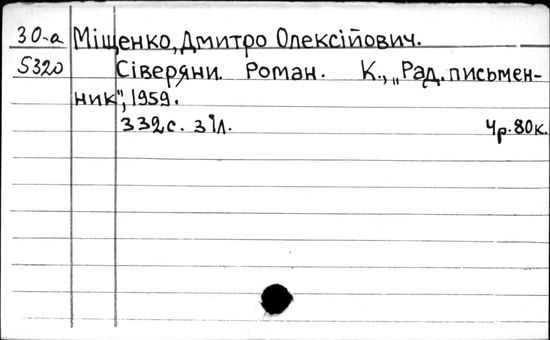 30-а Міщенко, Дмитро Олексійович.
5320 Сіверяни. Роман. К., „Рад. письмен-
ник", 1959.
332 с. з іл. 4 р. 80 к.